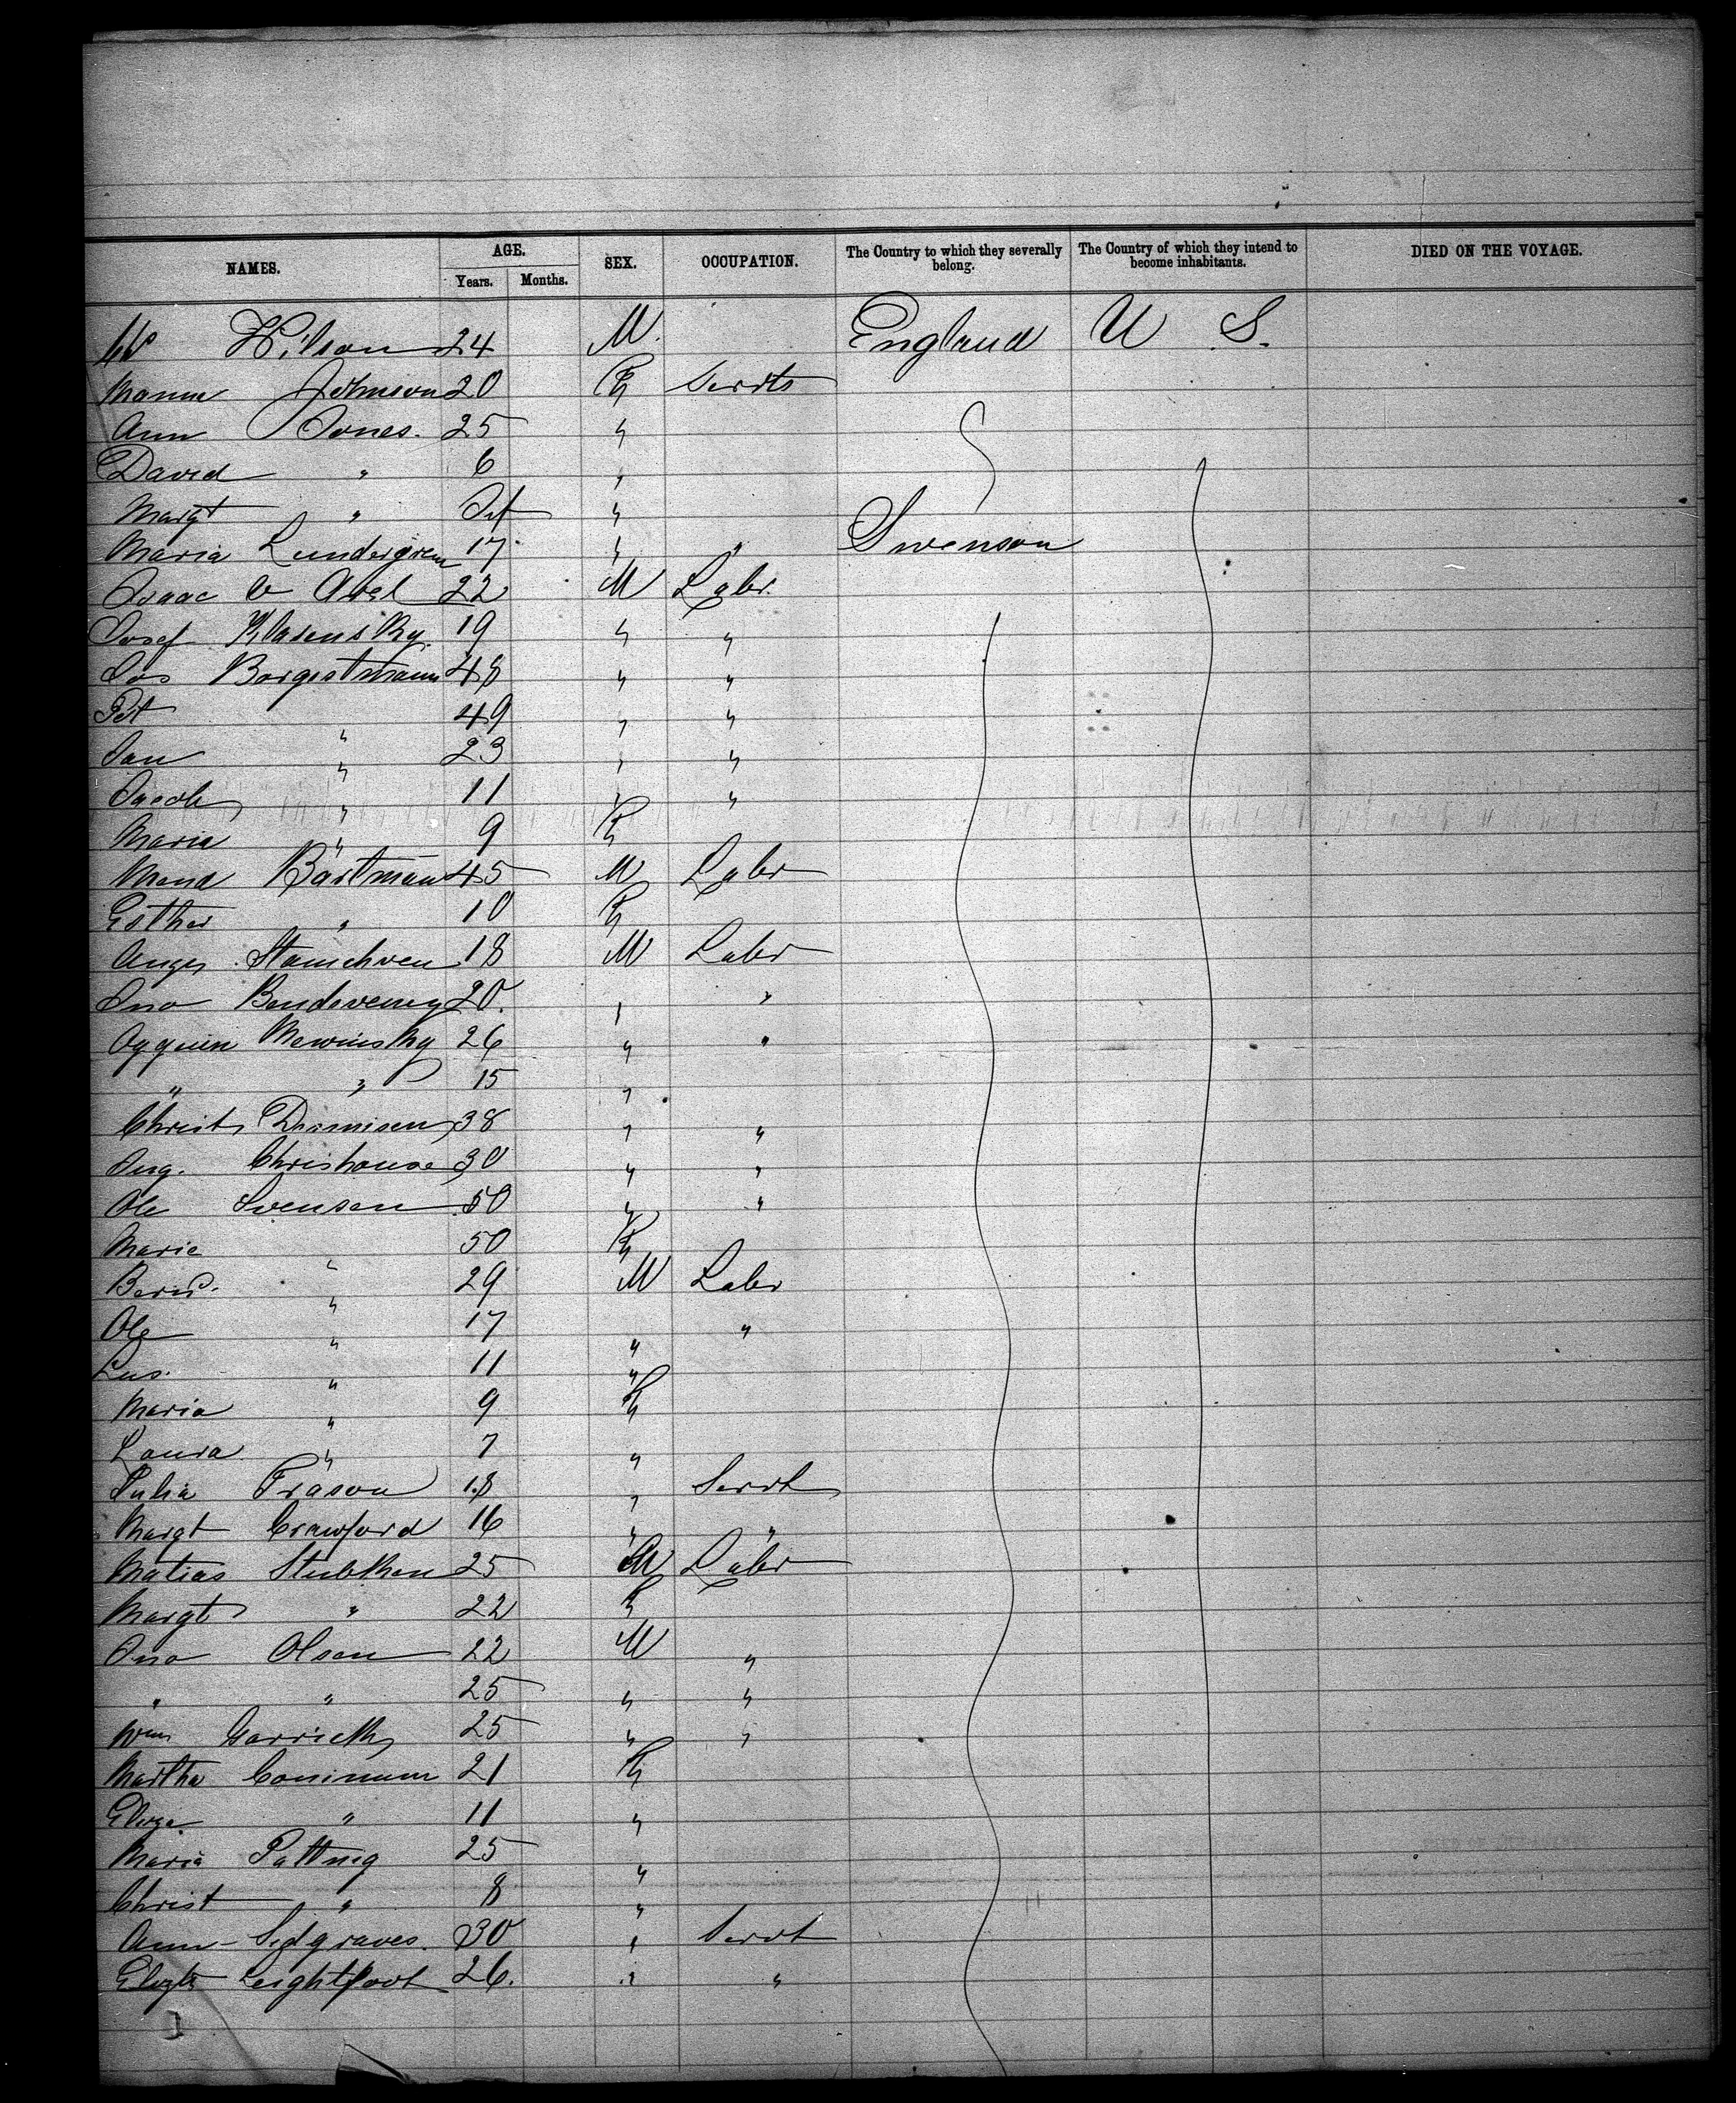 NAMES. AGE. Years. Months. SEX. OCCUPATION. The Country to which they severally belong. The Country of which they intend to become inhabitants. DIED ON THE VOYAGE.
Wilson 24 M. England U S.
Johnson 20 F Servts
Ann Jones. 25 "
David " 6 "
Margt " Inf "
Maria Lundergren 17 " " Swenson
Isaac Abel 22 M Labr.
Josef 19 " "
Jos Borgestmann 48 " "
Pet " 49 " "
Jan " 23 " "
Jacob " 11 " "
Maria " 9 F
Bartman 45 M Labr
Esther " 10 F
18 M Labr
Jno 20. " "
26 " "
" " 15 "
Christ 38 " "
30 " "
Ole Svensen 50 " "
Marie " 50 F
" 29 M Labr
Ole " 17 " "
" 11 "
Maria " 9 F
Laura " 7 "
Julia 18 " Servt
Margt Crawford 16 " "
Matias Stubkhen 25 M Labr
Margt " 22 F
Jno Olsen 22 M "
" " 25 " "
Wm Garrick 25 " "
Martha 21 F
Eliza " 11 "
Maria 25 "
Christ " 8 "
Ann Sedgraves. 30 " Servt
Elizth Leightfoot 26. " "